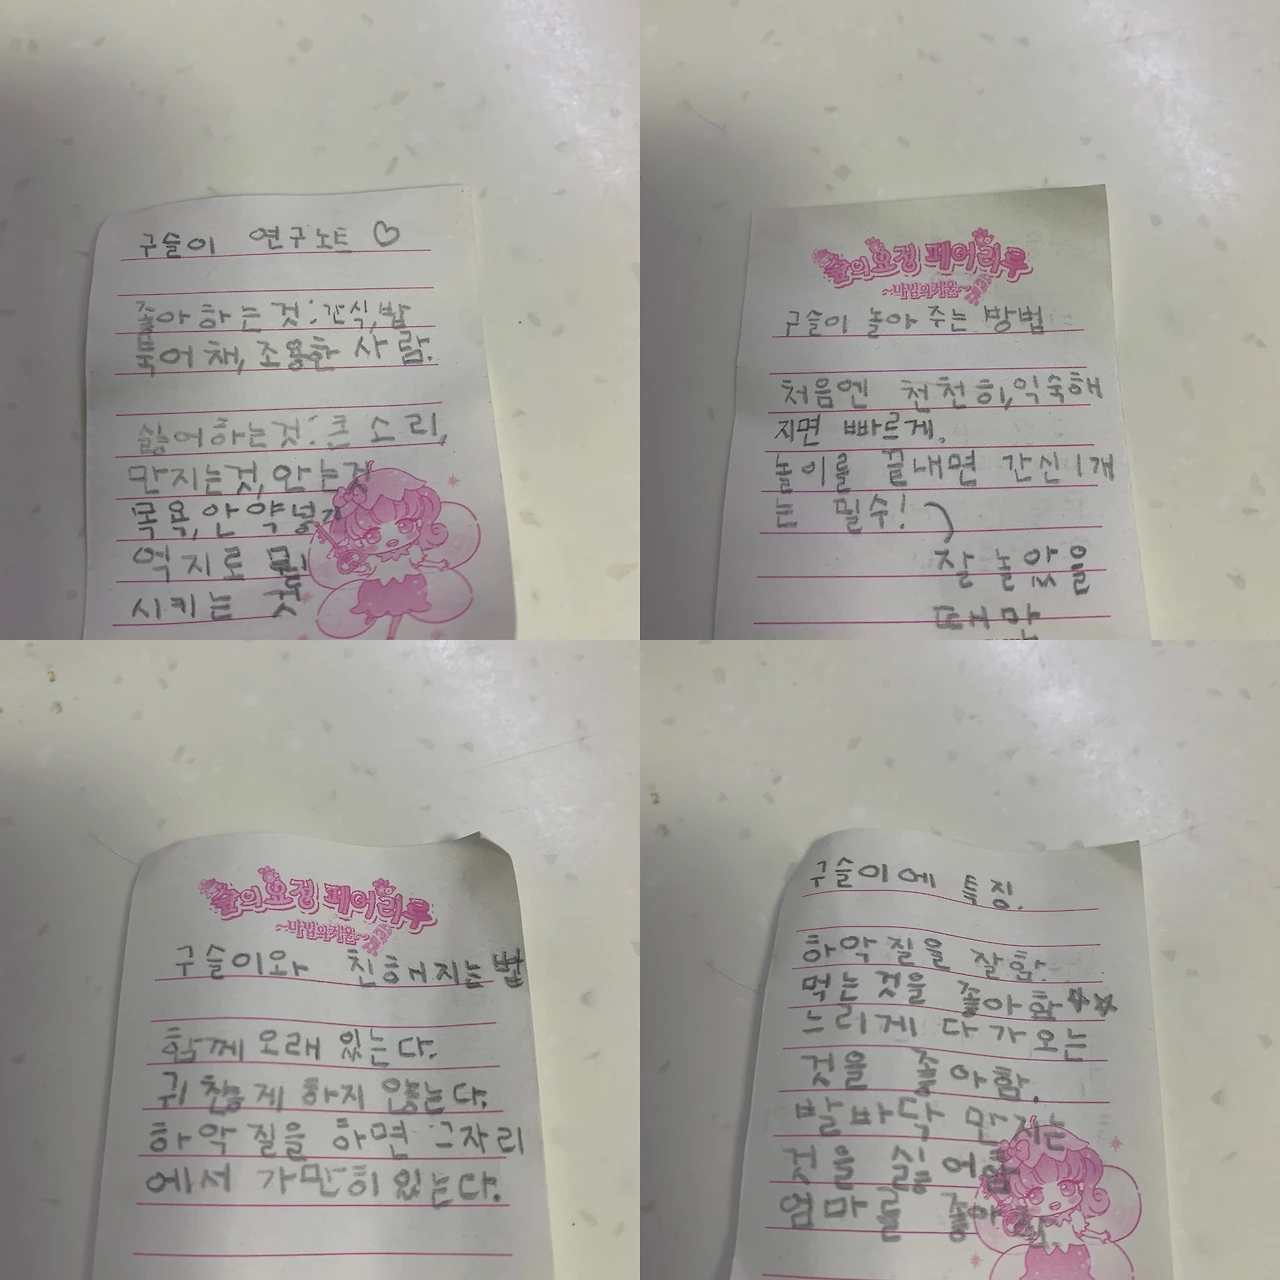 구슬이 연구노트 ♡
좋아하는 것:간식,밥
북어채, 조용한 사람.
싫어하는것:큰 소리,
만지는것,안는것
목욕,안약넣기
억지로 뭘
시키는 것
숲의요정 페어리루
~마법의거울~
구슬이 놀아 주는 방법
처음엔 천천히,익숙해
지면 빠르게.
놀이를 끝내면 간신1개
는 필수!
잘 놀았을
때만
숲의요정 페어리루
~마법의거울~
구슬이와 친해지는법
함께 오래 있는다.
귀찮게 하지 않는다.
하악질을 하면 그자리
에서 가만히 있는다.
구슬이에 특징.
하악질을 잘함.
먹는것을 좋아함☆☆
느리게 다가오는
것을 좋아함.
발바닥 만지는
것을 싫어함
엄마를 좋아함